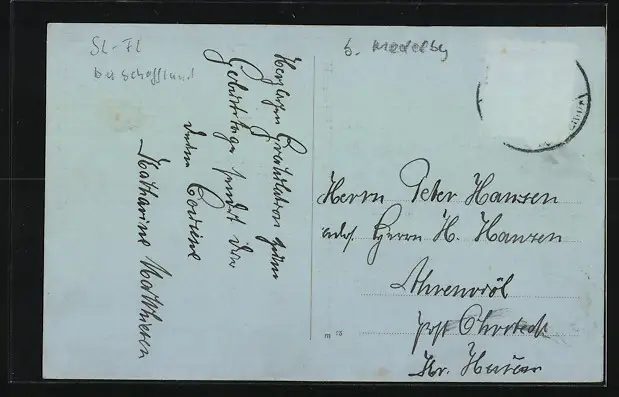 SL-FL
b. Medelby
Herzlichen Gratulation zum
Geburtstage sendet dir
deine Cousine
Katharine Matthiesen
Herrn Peter Hansen
Herrn H. Hansen
Ahrenviöl
post Ohrstedt
Kr. Husum
m 15